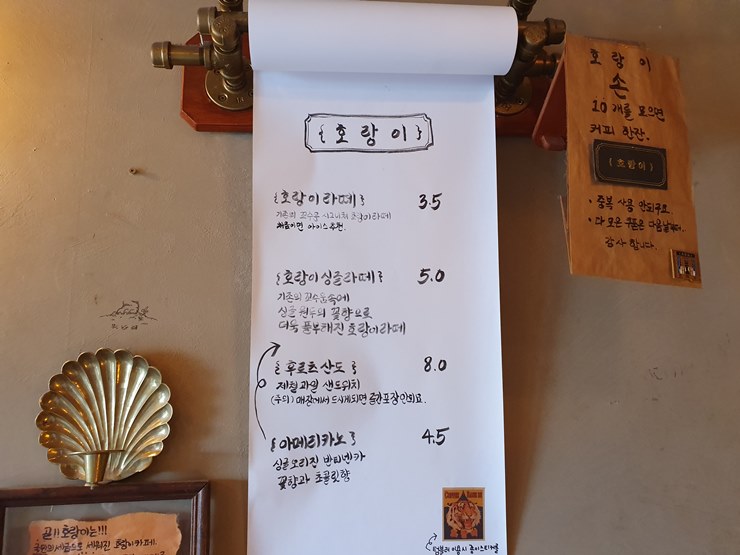 { 호랑이 }
{호랑이라떼} 3.5
기존의 꼬수운 시그니처 호랑이라떼
처음이면 아이스추천.
{호랑이싱글라떼} 5.0
기존의 꼬수움속에
싱글 원두의 꽃향으로
더욱 풀부해진 호랑이라떼
{후르츠산도} 8.0
제철과일 샌드위치
(주의) 매장에서 드시게되면 중간포장안돼요.
{아메리카노} 4.5
싱글오리진 반티넨카
꽃향과 초콜릿향
호랑이
손
10개를 모으면
커피 한잔.
{호랑이}
• 중복 사용 안되구요
• 다 모은 쿠폰은 다음날부터.
감사합니다.
호랑이는!!!